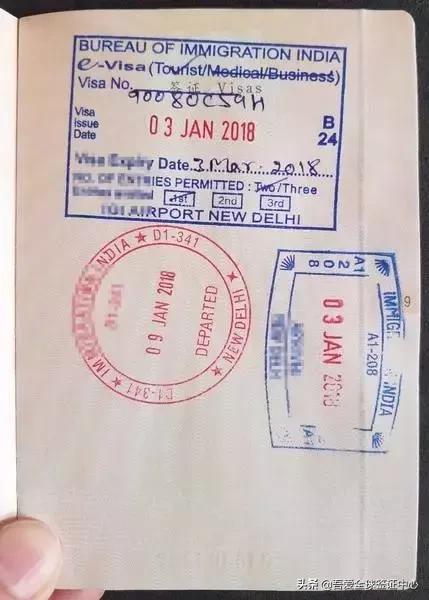 BUREAU OF IMMIGRATION INDIA
e-Visa (Tourist/Medical/Business)
签证 Visas
Visa No. 90080C59H
Visa Issue Date
03 JAN 2018
B 24
Visa Expiry Date 3 Mar. 2018
NO. OF ENTRIES PERMITTED : Two/Three
1st 2nd 3rd
IGI AIRPORT NEW DELHI
IMMIGRATION INDIA ★ D1-341 ★ NEW DELHI ★ D1-341 ★
09 JAN 2018
DEPARTED
A1 208
IMMIGR INDIA
A1-208
03 JAN 2018
NEW DELHI
A1
9
头条 @吾爱全球签证中心